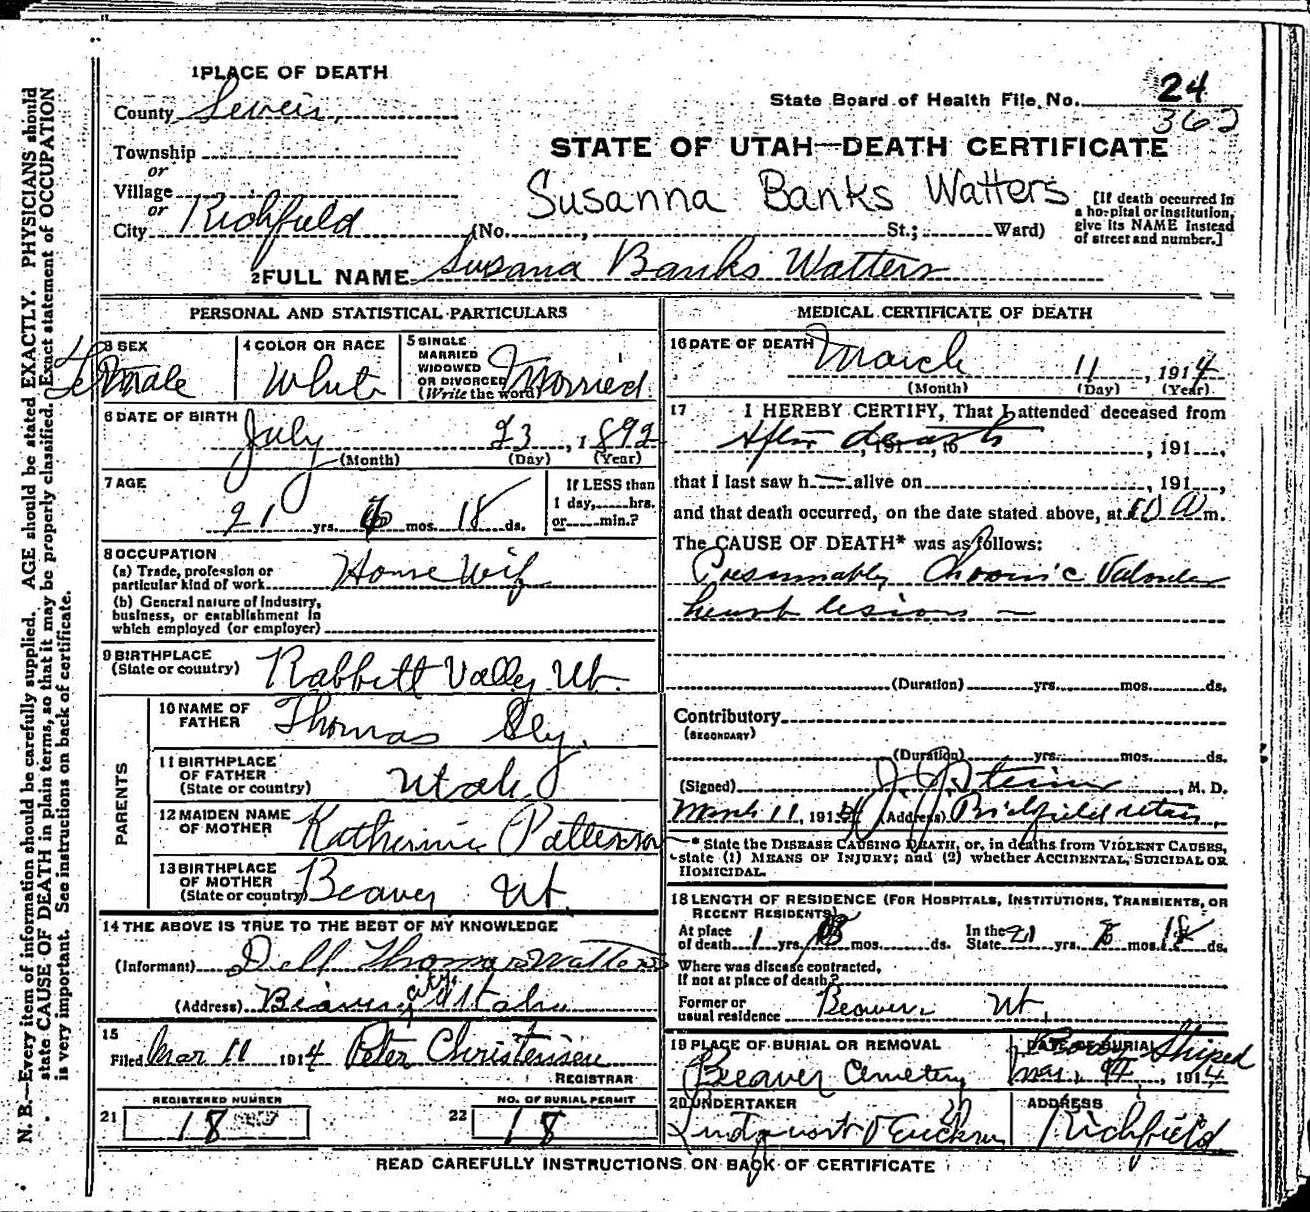 1 PLACE OF DEATH
County Seveir,
Township
or
Village
or
City Richfield
State Board of Health File No. 24
362
STATE OF UTAH—DEATH CERTIFICATE
Susanna Banks Watters
(No. , St.; Ward)
[If death occurred in
a hospital or institution,
give its NAME instead
of street and number.]
2 FULL NAME Susana Banks Watters
PERSONAL AND STATISTICAL PARTICULARS
3 SEX
Female
4 COLOR OR RACE
White
5 SINGLE
MARRIED
WIDOWED
OR DIVORCED
(Write the word) Married
6 DATE OF BIRTH
July 23, 1892
(Month) (Day) (Year)
7 AGE
21 yrs. mos. 18 ds.
If LESS than
1 day, hrs.
or min.?
8 OCCUPATION
(a) Trade, profession or
particular kind of work House Wife
(b) General nature of industry,
business, or establishment in
which employed (or employer)
9 BIRTHPLACE
(State or country) Rabbitt Valley Ut.
PARENTS
10 NAME OF
FATHER Thomas Sly.
11 BIRTHPLACE
OF FATHER
(State or country) Utah
12 MAIDEN NAME
OF MOTHER Katherine Patterson
13 BIRTHPLACE
OF MOTHER
(State or country) Beaver Ut.
14 THE ABOVE IS TRUE TO THE BEST OF MY KNOWLEDGE
(Informant) Dell Thomas Watters
(Address) Beaver, city, Utah
15
Filed Mar 11 1914 Peter Christensen
REGISTRAR
21 REGISTERED NUMBER
18
22 NO. OF BURIAL PERMIT
18
MEDICAL CERTIFICATE OF DEATH
16 DATE OF DEATH March 11, 1914
(Month) (Day) (Year)
17 I HEREBY CERTIFY, That I attended deceased from
After death, 191 , to , 191 ,
that I last saw h alive on , 191 ,
and that death occurred, on the date stated above, at 10 A m.
The CAUSE OF DEATH* was as follows:
Presumably Chronic Valvular
heart lesion
(Duration) yrs. mos. ds.
Contributory
(SECONDARY)
(Duration) yrs. mos. ds.
(Signed) J. J. Steiner, M. D.
March 11, 1914 (Address) Richfield Utah
* State the DISEASE CAUSING DEATH, or, in deaths from VIOLENT CAUSES,
state (1) MEANS OF INJURY; and (2) whether ACCIDENTAL, SUICIDAL OR
HOMICIDAL.
18 LENGTH OF RESIDENCE (FOR HOSPITALS, INSTITUTIONS, TRANSIENTS, OR
RECENT RESIDENTS)
At place
of death 1 yrs. mos. ds.
In the
State 21 yrs. mos. 18 ds.
Where was disease contracted,
if not at place of death?
Former or
usual residence Beaver, Ut.
19 PLACE OF BURIAL OR REMOVAL
Beaver Cemetery
DATE OF BURIAL
Body Shiped
Mar. , 1914
20 UNDERTAKER
ADDRESS
Richfield
READ CAREFULLY INSTRUCTIONS ON BACK OF CERTIFICATE
N. B.—Every item of information should be carefully supplied. AGE should be stated EXACTLY. PHYSICIANS should
state CAUSE OF DEATH in plain terms, so that it may be properly classified. Exact statement of OCCUPATION
is very important. See instructions on back of certificate.